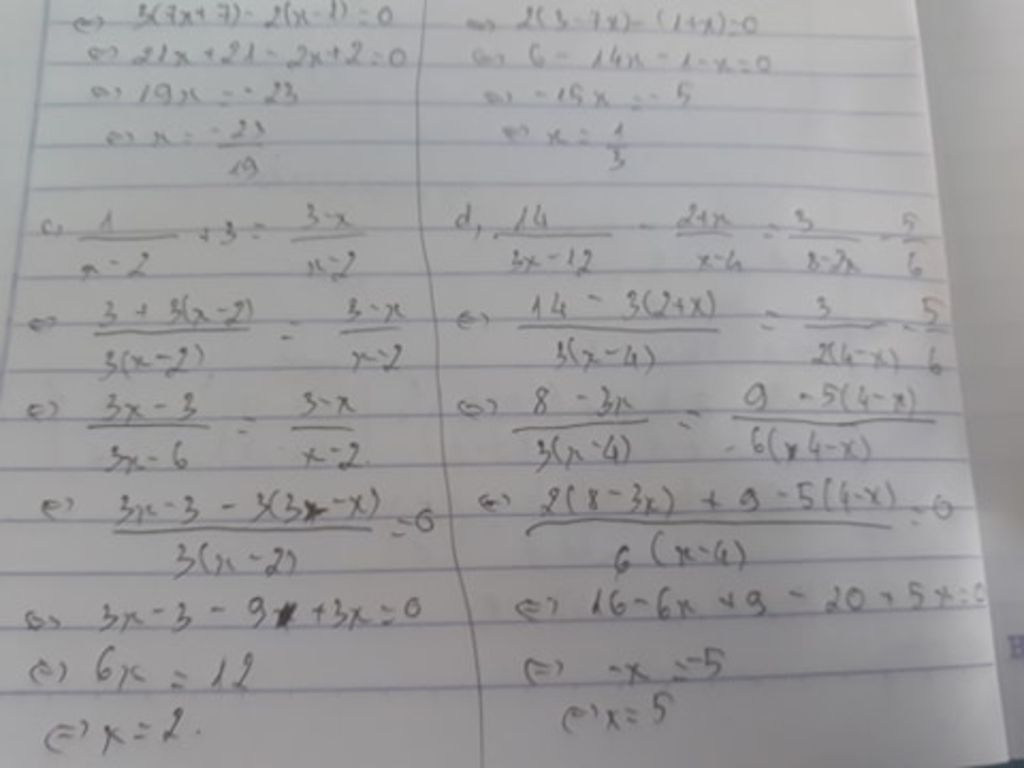 ⇔ 3(7x+7) - 2(x-1) = 0
⇔ 21x + 21 - 2x + 2 = 0
⇔ 19x = -23
⇔ x = -23/19
c, 1/(x-2) + 3 = (3-x)/(x-2)
⇔ (3 + 3(x-2))/(3(x-2)) = (3-x)/(x-2)
⇔ (3x-3)/(3x-6) = (3-x)/(x-2)
⇔ (3x-3 - 3(3-x))/(3(x-2)) = 0
⇔ 3x - 3 - 9 + 3x = 0
⇔ 6x = 12
⇔ x = 2.
⇔ 2(3-7x) - (1+x) = 0
⇔ 6 - 14x - 1 - x = 0
⇔ -15x = -5
⇔ x = 1/3
d, 14/(3x-12) - (2+x)/(x-4) = 3/(8-2x) - 5/6
⇔ (14 - 3(2+x))/(3(x-4)) = 3/(2(4-x)) - 5/6
⇔ (8 - 3x)/(3(x-4)) = (9 - 5(4-x))/(-6(4-x))
⇔ (2(8-3x) + 9 - 5(4-x))/(6(x-4)) = 0
⇔ 16 - 6x + 9 - 20 + 5x = 0
⇔ -x = -5
⇔ x = 5